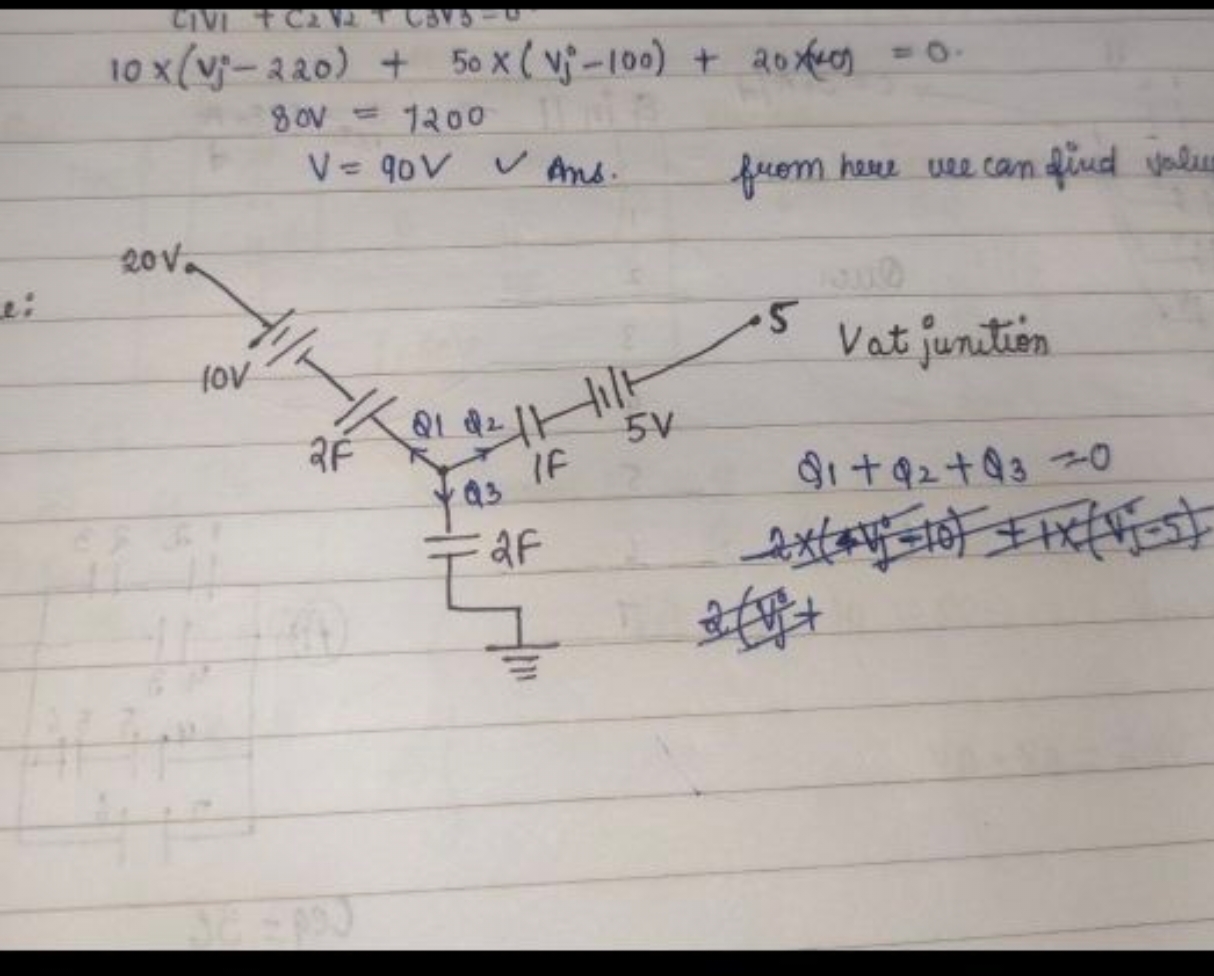 C1V1 + C2V2 + C3V3 = 0
10 x (Vj - 220) + 50 x ( Vj - 100) + 20 x = 0.
80V = 7200
V = 90V ✓ Ans. from here we can find
20V
e:
10V
2F
Q1 Q2
1F
5V
5
Q3
2F
V at junction
Q1 + Q2 + Q3 = 0
2 x ( Vj - 10) + 1 x (Vj - 5)
2 (Vj +